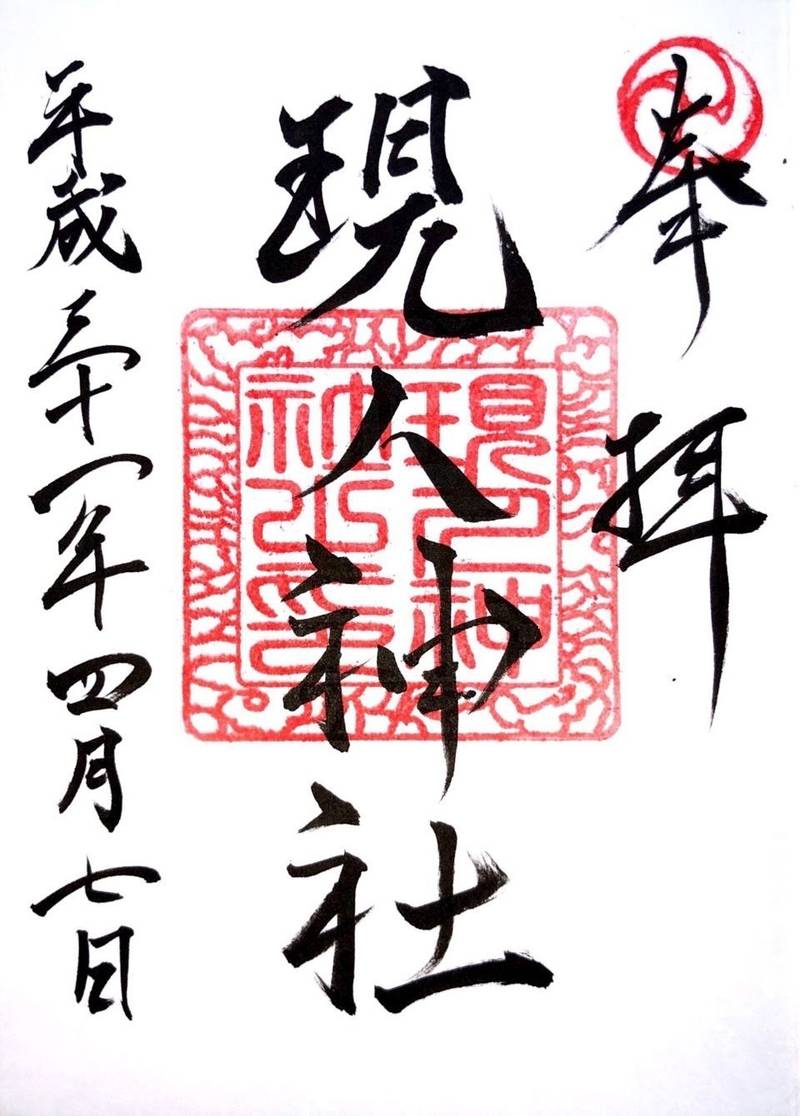 奉拝
現人神社
現人神社之印
平成三十一年四月七日